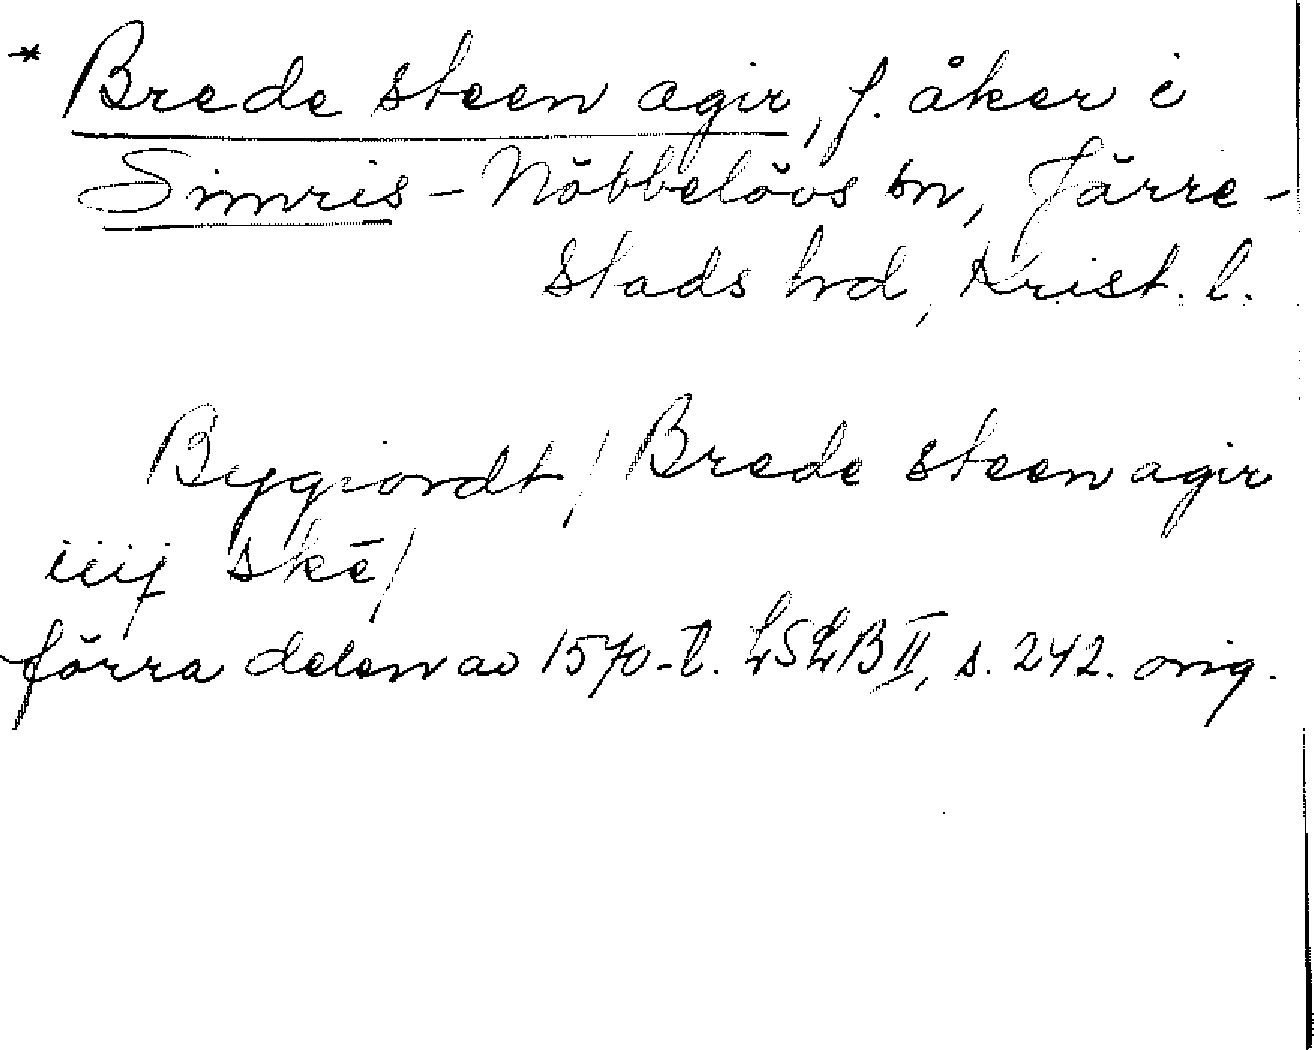 * Brede steen agir, f. åker i
Simris - Nöbbelövs sn, Järre-
stads hrd, Krist. l.
Bygiordt / Brede steen agir
iiij skē /
förra delen av 1570-t. LSLB II, s. 242. orig.